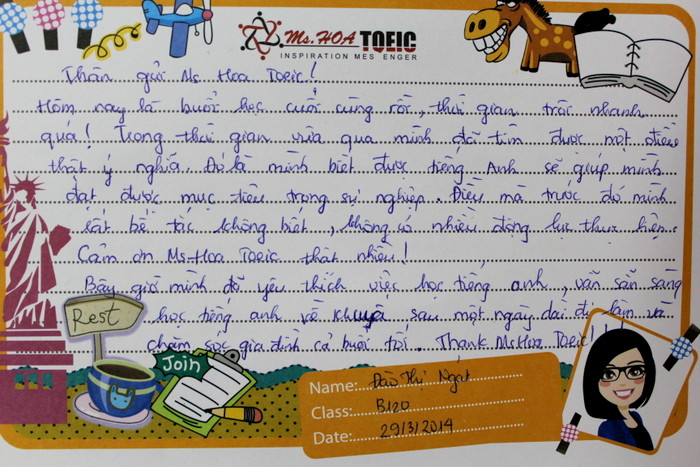 Ms.HOA TOEIC
INSPIRATION MES ENGER
Thân gửi Ms Hoa Toeic!
Hôm nay là buổi học cuối cùng rồi, thời gian trôi nhanh
quá! Trong thời gian vừa qua mình đã tìm được một điều
thật ý nghĩa. Đó là mình biết được tiếng Anh sẽ giúp mình
đạt được mục tiêu trong sự nghiệp. Điều mà trước đó mình
rất bế tắc không biết, không có nhiều động lực thực hiện.
Cảm ơn Ms Hoa Toeic thật nhiều!
Bây giờ mình đã yêu thích việc học tiếng anh, vẫn sẵn sàng
học tiếng anh về khuya sau một ngày dài đi làm và
chăm sóc gia đình cả buổi tối. Thank Ms Hoa Toeic!!
Rest
Join
Name: Đào Thị Ngát
Class: B120
Date: 29/3/2014